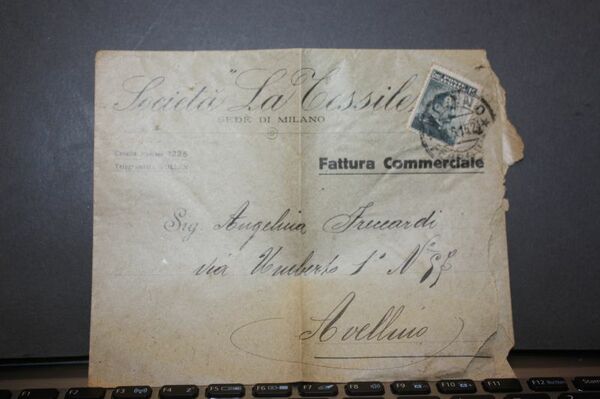 Società "La Tessile
SEDE DI MILANO
Casella Postale 1225
Fattura Commerciale
Sig. Angelina Iccardi
via Umberto 1° N° 57
Avellino
F1
F2
F3
F4
F5
F6
F7
F8
F9
F10
F11
F12